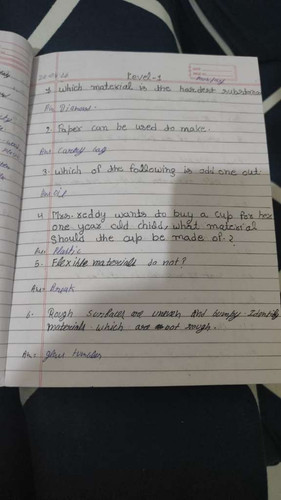 Level-1
1. Which material is the hardest substance
Ans. Diamond.
2. Paper can be used to make.
Ans. Carry bag
3. Which of the following is odd one out.
Ans. Oil
4. Mrs. reddy wants to buy a cup for her
one year old child, what material
Should the cup be made of?
Ans. Plastic
5. Flexible materials do not?
Ans. Break
6. Rough surfaces are uneven and bumpy Identify
materials which are not rough.
Ans. Glass tumbler